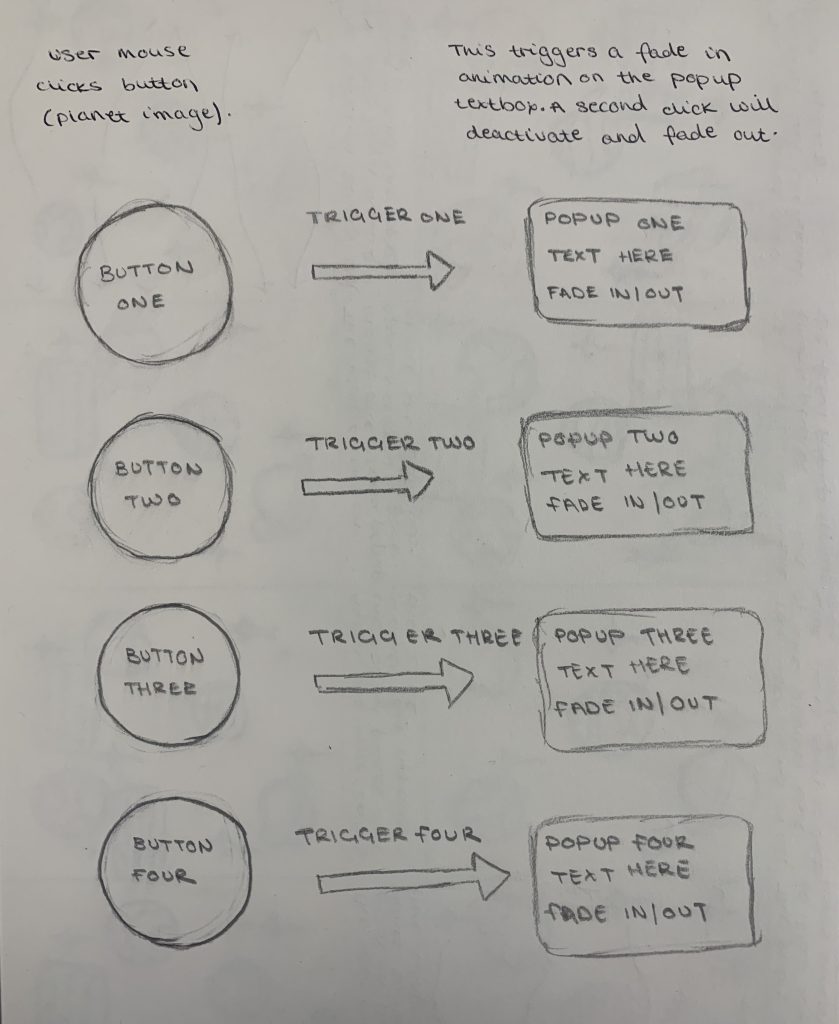 user mouse
clicks button
(planet image).
This triggers a fade in
animation on the popup
textbox. A second click will
deactivate and fade out.
BUTTON
ONE
TRIGGER ONE
POPUP ONE
TEXT HERE
FADE IN/OUT
BUTTON
TWO
TRIGGER TWO
POPUP TWO
TEXT HERE
FADE IN/OUT
BUTTON
THREE
TRIGGER THREE
POPUP THREE
TEXT HERE
FADE IN/OUT
BUTTON
FOUR
TRIGGER FOUR
POPUP FOUR
TEXT HERE
FADE IN/OUT